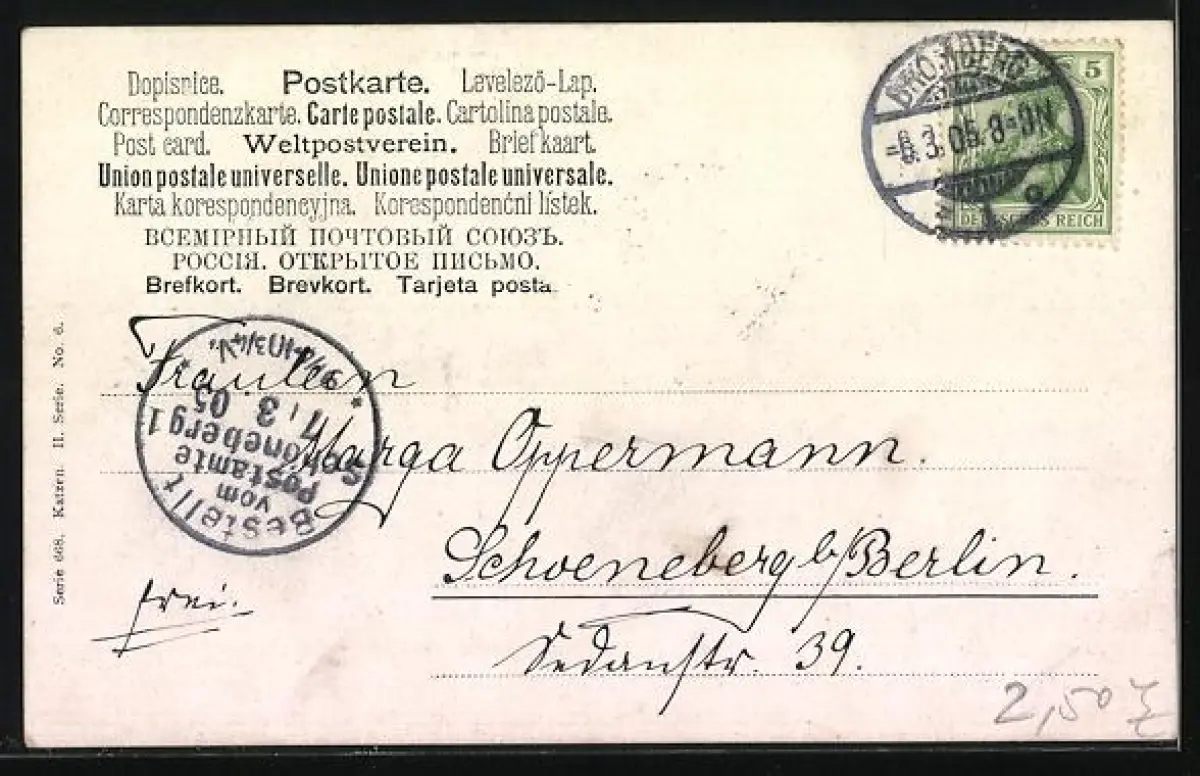 Dopisnice. Postkarte. Levelező-Lap.
Correspondenzkarte. Carte postale. Cartolina postale.
Post card. Weltpostverein. Briefkaart.
Union postale universelle. Unione postale universale.
Karta korespondencyjna. Korespondenčni listek.
ВСЕМІРНЫЙ ПОЧТОВЫЙ СОЮЗЪ.
РОССІЯ. ОТКРЫТОЕ ПИСЬМО.
Brefkort. Brevkort. Tarjeta posta.
BROMBERG
6.3.05.8-9N
c
5
DEUTSCHES REICH
Bestellt
vom
Postamte
Schöneberg 1
7.3
05
Fräulein
Marga Oppermann.
Schoeneberg b/Berlin.
Sedanstr. 39.
frei.
Serie 668. Katzen. II. Serie. No. 6.
2,50